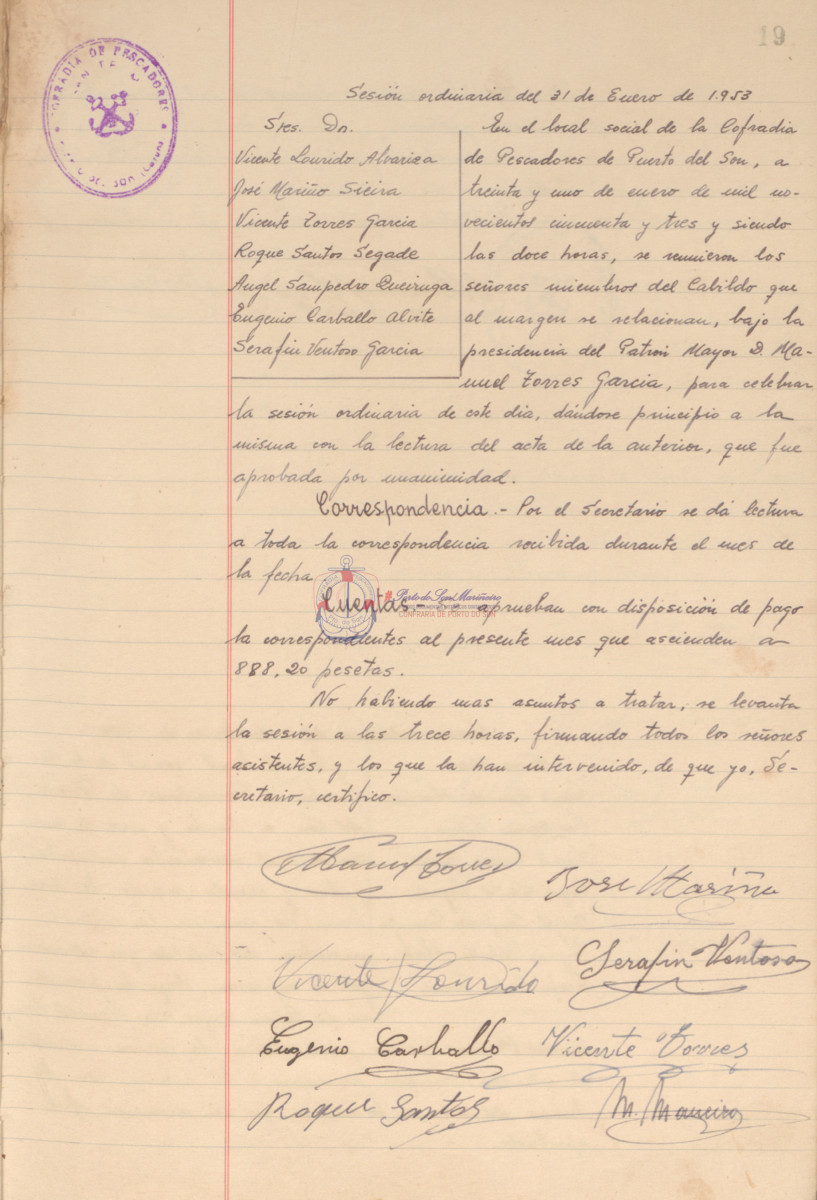 19
COFRADIA DE PESCADORES
Sesión ordinaria del 31 de Enero de 1.953
Sres. Dn.
Vicente Lourido Alvariza
José Mariño Sieira
Vicente Torres Garcia
Roque Santos Segade
Angel Sampedro Queiruga
Eugenio Carballo Alvite
Serafin Ventoso Garcia
En el local social de la Cofradia
de Pescadores de Puerto del Son, a
treinta y uno de enero de mil no-
vecientos cincuenta y tres y siendo
las doce horas, se reunieron los
señores miembros del Cabildo que
al margen se relacionan, bajo la
presidencia del Patrón Mayor D. Ma-
nuel Torres Garcia, para celebrar
la sesión ordinaria de este dia, dándose principio a la
misma con la lectura del acta de la anterior, que fue
aprobada por unanimidad.
Correspondencia.- Por el Secretario se dá lectura
a toda la correspondencia recibida durante el mes de
la fecha
Porto do Son Mariñeiro
CONFRARIA DE PORTO DO SON
Cuentas.- aprueban con disposición de pago
la correspondientes al presente mes que ascienden a
888,20 pesetas.
No habiendo mas asuntos a tratar, se levanta
la sesión a las trece horas, firmando todos los señores
asistentes, y los que la han intervenido, de que yo, Se-
cretario, certifico.
Manuel Torres
Jose Mariño
Vicente Lourido
Serafin Ventoso
Eugenio Carballo
Vicente Torres
Roque Santos
M. Maneiro